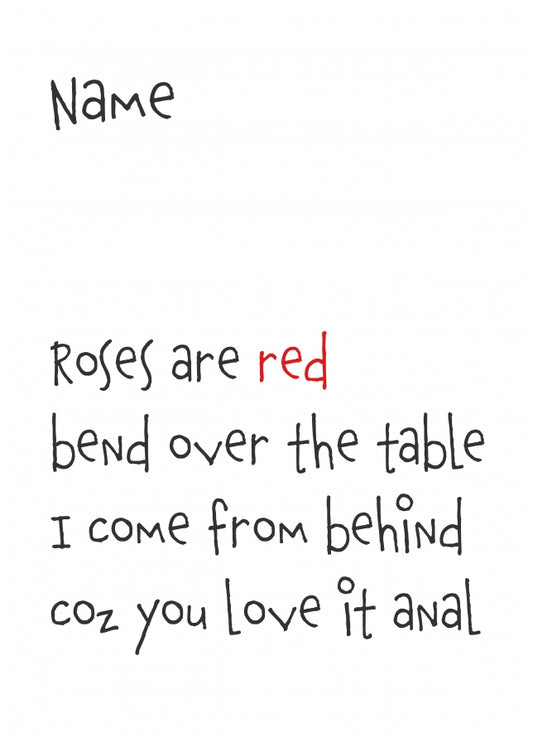 Name
Roses are red
bend over the table
I come from behind
coz you love it anal